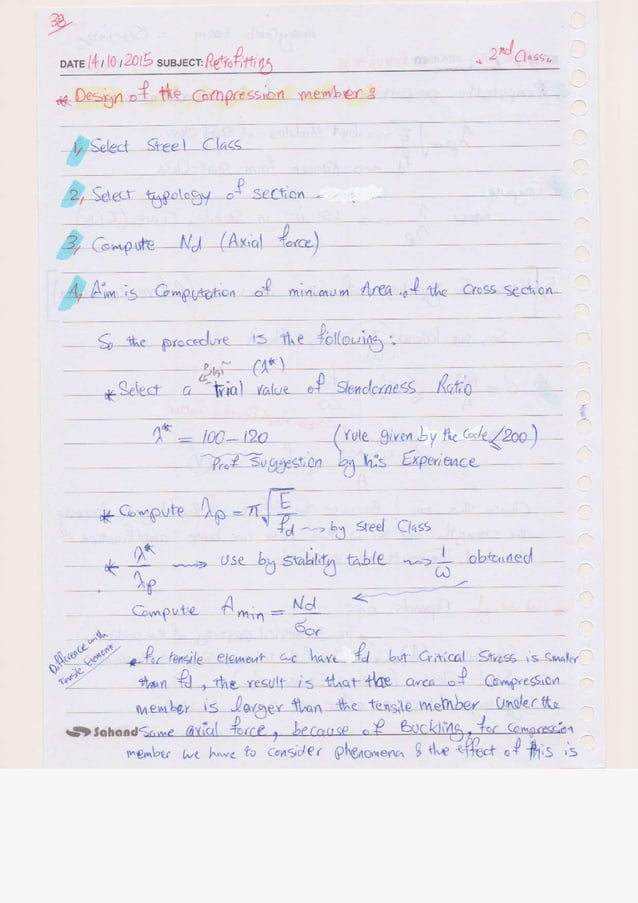 38
DATE 14/10/2015 SUBJECT: Retrofitting 2nd Class
* Design of the compression member:
1, Select Steel Class
2, Select typology of section
3, Compute Nd (Axial force)
4, Aim is Computation of minimum Area of the cross section
So the procedure is the following:
(λ*)
* Select a trial value of Slenderness Ratio
λ* = 100-120 (rule given by the code ≤200)
Prof Suggestion by his Experience
* Compute λp = π√(E/fd) ⟿ by steel Class
* λ*/λp ⟿ use by stability table ⟿ 1/ω obtained
Compute Amin = Nd/σcr
Difference with tensile Element
* for tensile element we have fd but Critical Stress is smaller
than fd, the result is that the area of Compression
member is larger than the tensile member under the
Sahand same axial force, because of Buckling, for compression
member we have to consider phenomena & the effect of this is